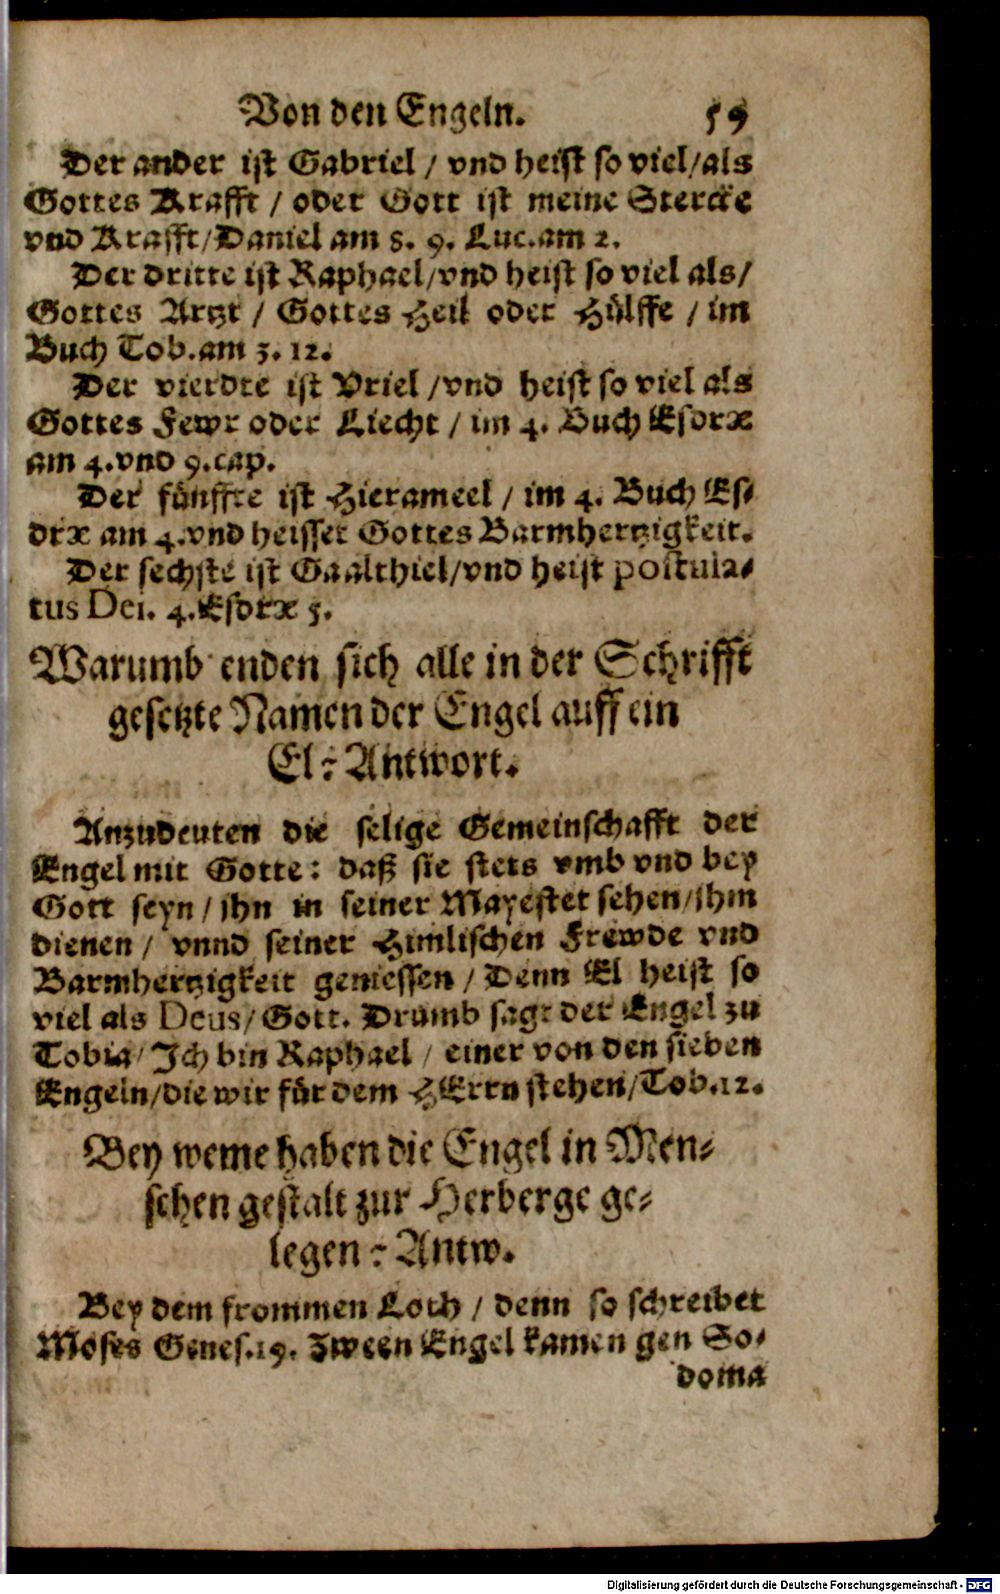 Von den Engeln. 59
Der ander ist Gabriel / vnd heist so viel/als
Gottes Krafft / oder Gott ist meine Stercke
vnd Krafft/Daniel am 8. 9. Luc.am 2.
Der dritte ist Raphael/vnd heist so viel als/
Gottes Artzt / Gottes Heil oder Hülffe / im
Buch Tob.am 3. 12.
Der vierdte ist Vriel /vnd heist so viel als
Gottes Fewr oder Liecht / im 4. Buch Esdræ
am 4.vnd 9.cap.
Der fünffte ist Hierameel / im 4. Buch Es-
dræ am 4.vnd heisset Gottes Barmhertzigkeit.
Der sechste ist Gaalthiel/vnd heist postula-
tus Dei. 4.Esdræ 5.
Warumb enden sich alle in der Schrifft
gesetzte Namen der Engel auff ein
El? Antwort.
Anzudeuten die selige Gemeinschafft der
Engel mit Gotte: daß sie stets vmb vnd bey
Gott seyn / ihn in seiner Mayestet sehen/ihm
dienen / vnnd seiner Himlischen Frewde vnd
Barmhertzigkeit geniessen / Denn El heist so
viel als Deus/Gott. Drumb sagt der Engel zu
Tobia/ Ich bin Raphael / einer von den sieben
Engeln/die wir für dem HErrn stehen/Tob.12.
Bey weme haben die Engel in Men-
schen gestalt zur Herberge ge-
legen? Antw.
Bey dem frommen Loth / denn so schreibet
Moses Genes.19. Zween Engel kamen gen So-
doma
Digitalisierung gefördert durch die Deutsche Forschungsgemeinschaft - DFG